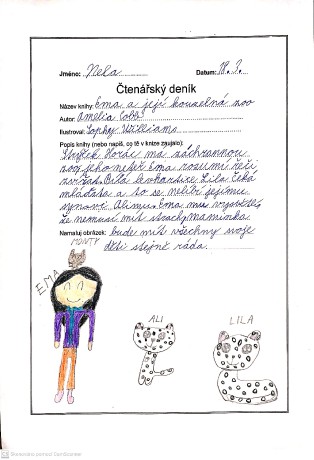 Jméno: Nela Datum: 18. 3.
Čtenářský deník
Název knihy: Ema a její kouzelná zoo
Autor: Amelia Cobb
Ilustroval: Sophy Williams
Popis knihy (nebo napiš, co tě v knize zaujalo):
Horác má záchrannou
zoo jeho neteř Ema rozumí řeči
zvířat. Bílá levhartice Lila čeká
mláďata a to se nelíbí jejímu
synovi Alimu. Ema mu vysvětlí
že nemusí mít strach, maminka
Namaluj obrázek: bude mít všechny svoje
děti stejně ráda.
MONTY
EMA
ALI
LILA